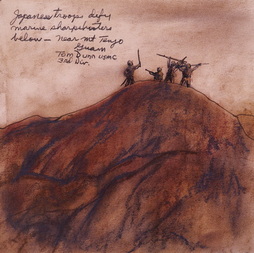 Japanese troops defy
marine sharpshooters
below - near Mt Tenjo
Guam
Tom Dunn USMC
3rd Div.